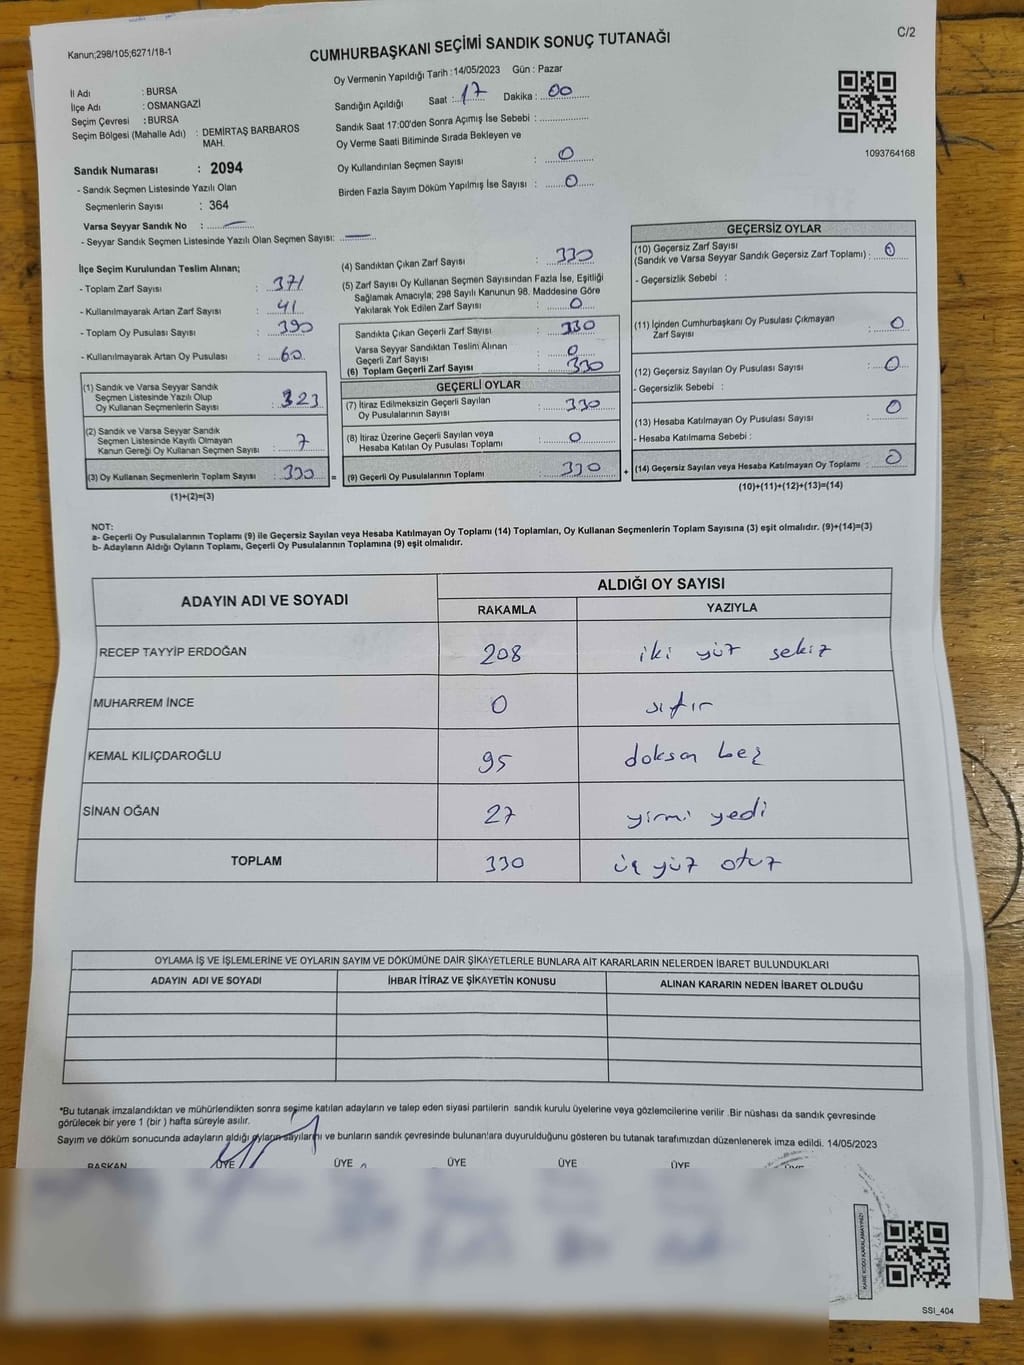 Kanun;298/105;6271/18-1
C/2
CUMHURBAŞKANI SEÇİMİ SANDIK SONUÇ TUTANAĞI
Oy Vermenin Yapıldığı Tarih :14/05/2023 Gün : Pazar
İl Adı : BURSA
İlçe Adı : OSMANGAZİ
Seçim Çevresi : BURSA
Seçim Bölgesi (Mahalle Adı) : DEMİRTAŞ BARBAROS MAH.
Sandık Numarası : 2094
- Sandık Seçmen Listesinde Yazılı Olan
Seçmenlerin Sayısı : 364
Varsa Seyyar Sandık No : —
- Seyyar Sandık Seçmen Listesinde Yazılı Olan Seçmen Sayısı: —
Sandığın Açıldığı Saat : 17 Dakika : 00
Sandık Saat 17:00'den Sonra Açımış İse Sebebi :
Oy Verme Saati Bitiminde Sırada Bekleyen ve
Oy Kullandırılan Seçmen Sayısı : 0
Birden Fazla Sayım Döküm Yapılmış İse Sayısı : 0
1093764168
İlçe Seçim Kurulundan Teslim Alınan;
- Toplam Zarf Sayısı : 371
- Kullanılmayarak Artan Zarf Sayısı : 41
- Toplam Oy Pusulası Sayısı : 390
- Kullanılmayarak Artan Oy Pusulası : 60
(1) Sandık ve Varsa Seyyar Sandık
Seçmen Listesinde Yazılı Olup
Oy Kullanan Seçmenlerin Sayısı : 323
(2) Sandık ve Varsa Seyyar Sandık
Seçmen Listesinde Kayıtlı Olmayan
Kanun Gereği Oy Kullanan Seçmen Sayısı : 7
(3) Oy Kullanan Seçmenlerin Toplam Sayısı : 330 =
(1)+(2)=(3)
(4) Sandıktan Çıkan Zarf Sayısı : 330
(5) Zarf Sayısı Oy Kullanan Seçmen Sayısından Fazla İse, Eşitliği
Sağlamak Amacıyla; 298 Sayılı Kanunun 98. Maddesine Göre
Yakılarak Yok Edilen Zarf Sayısı : 0
Sandıkta Çıkan Geçerli Zarf Sayısı : 330
Varsa Seyyar Sandıktan Teslim Alınan
Geçerli Zarf Sayısı : 0
(6) Toplam Geçerli Zarf Sayısı : 330
GEÇERLİ OYLAR
(7) İtiraz Edilmeksizin Geçerli Sayılan
Oy Pusulalarının Sayısı : 330
(8) İtiraz Üzerine Geçerli Sayılan veya
Hesaba Katılan Oy Pusulası Toplamı : 0
(9) Geçerli Oy Pusulalarının Toplamı : 330 +
GEÇERSİZ OYLAR
(10) Geçersiz Zarf Sayısı
(Sandık ve Varsa Seyyar Sandık Geçersiz Zarf Toplamı) : 0
- Geçersizlik Sebebi :
(11) İçinden Cumhurbaşkanı Oy Pusulası Çıkmayan
Zarf Sayısı : 0
(12) Geçersiz Sayılan Oy Pusulası Sayısı : 0
- Geçersizlik Sebebi :
(13) Hesaba Katılmayan Oy Pusulası Sayısı : 0
- Hesaba Katılmama Sebebi :
(14) Geçersiz Sayılan veya Hesaba Katılmayan Oy Toplamı : 0
(10)+(11)+(12)+(13)=(14)
NOT:
a- Geçerli Oy Pusulalarının Toplamı (9) ile Geçersiz Sayılan veya Hesaba Katılmayan Oy Toplamı (14) Toplamları, Oy Kullanan Seçmenlerin Toplam Sayısına (3) eşit olmalıdır. (9)+(14)=(3)
b- Adayların Aldığı Oyların Toplamı, Geçerli Oy Pusulalarının Toplamına (9) eşit olmalıdır.
ADAYIN ADI VE SOYADI ALDIĞI OY SAYISI
RAKAMLA YAZIYLA
RECEP TAYYİP ERDOĞAN 208 iki yüz sekiz
MUHARREM İNCE 0 sıfır
KEMAL KILIÇDAROĞLU 95 doksan beş
SİNAN OĞAN 27 yirmi yedi
TOPLAM 330 üç yüz otuz
OYLAMA İŞ VE İŞLEMLERİNE VE OYLARIN SAYIM VE DÖKÜMÜNE DAİR ŞİKAYETLERLE BUNLARA AİT KARARLARIN NELERDEN İBARET BULUNDUKLARI
ADAYIN ADI VE SOYADI İHBAR İTİRAZ VE ŞİKAYETİN KONUSU ALINAN KARARIN NEDEN İBARET OLDUĞU
*Bu tutanak imzalandıktan ve mühürlendikten sonra seçime katılan adayların ve talep eden siyasi partilerin sandık kurulu üyelerine veya gözlemcilerine verilir .Bir nüshası da sandık çevresinde
görülecek bir yere 1 (bir ) hafta süreyle asılır.
Sayım ve döküm sonucunda adayların aldığı oyların sayılarını ve bunların sandık çevresinde bulunanlara duyurulduğunu gösteren bu tutanak tarafımızdan düzenlenerek imza edildi. 14/05/2023
BAŞKAN ÜYE ÜYE ÜYE ÜYE ÜYE ÜYE
KARE KODU KARALAMAYINIZ!
SSI_404